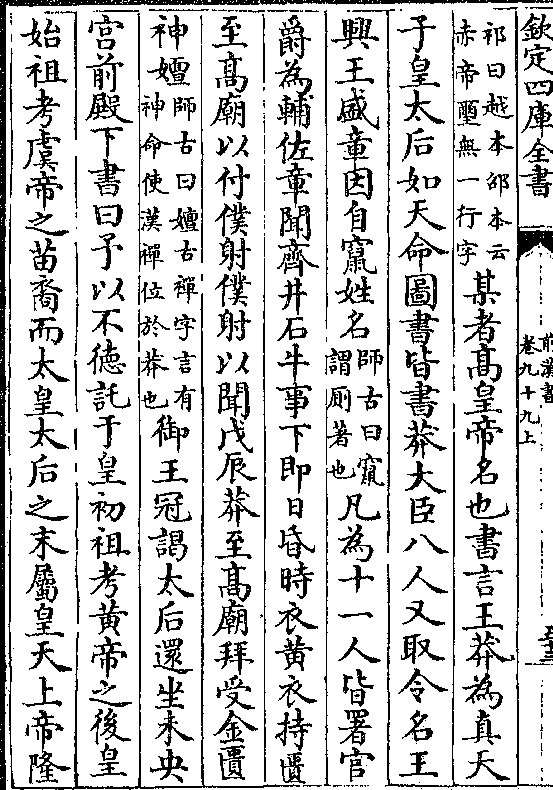 欽定四庫全書
前漢書
卷九十九上
祁曰越本邵本云
赤帝璽無一行字
某者高皇帝名也書言王莽為真天
子皇太后如天命圖書皆書莽大臣八人又取令名王
興王盛章因自竄姓名
師古曰竄
謂厠著也
凡為十一人皆署官
爵為輔佐章聞齊井石牛事下即日昏時衣黄衣持匱
至髙廟以付僕射僕射以聞戊辰莽至髙廟拜受金匱
神嬗
師古曰嬗古禪字言有
神命使漢禪位於莽也
御王冠謁太后還坐未央
宫前殿下書曰予以不德託于皇初祖考黄帝之後皇
始祖考虞帝之苗裔而太皇太后之末屬皇天上帝隆